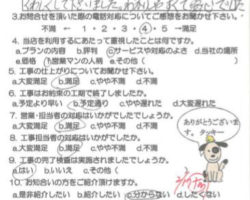 くわしくして下さいました。わかりやすくて安心でした
3.お問合せを頂いた際の電話対応についてご感想をお聞かせ下さい。
不満 ← 1・2・3・④・5 →満足
4. 当店を利用するにあたって重視したことは何ですか。
a.プランの内容 b.評判 c.サービスや対応のよさ d.当社の場所
e.価格 f.営業マンの人柄 e.その他( )
5. 工事の仕上がりについてお聞かせ下さい。
a.大変満足 b.満足 c.やや不満 d.不満
6. 工事のお約束の期間で終了しましたか。
a.予定より早い b.予定通り c.やや遅れた d.大変遅れた
7. 営業・担当者の対応はいかがでしたか。
a.大変満足 b.満足 c.やや不満 d.不満
8. 工事担当者の対応はいかがでしたか。
a.大変満足 b.満足 c.やや不満 d.不満
9. 工事の完了検査は実施されましたでしょうか。
a.はい b.いいえ c.その他( )
10. お知合いの方をご紹介頂けますか。
a.是非紹介したい b.紹介したい c.分からない d.したくない
ありがとうございま
す。タッキー